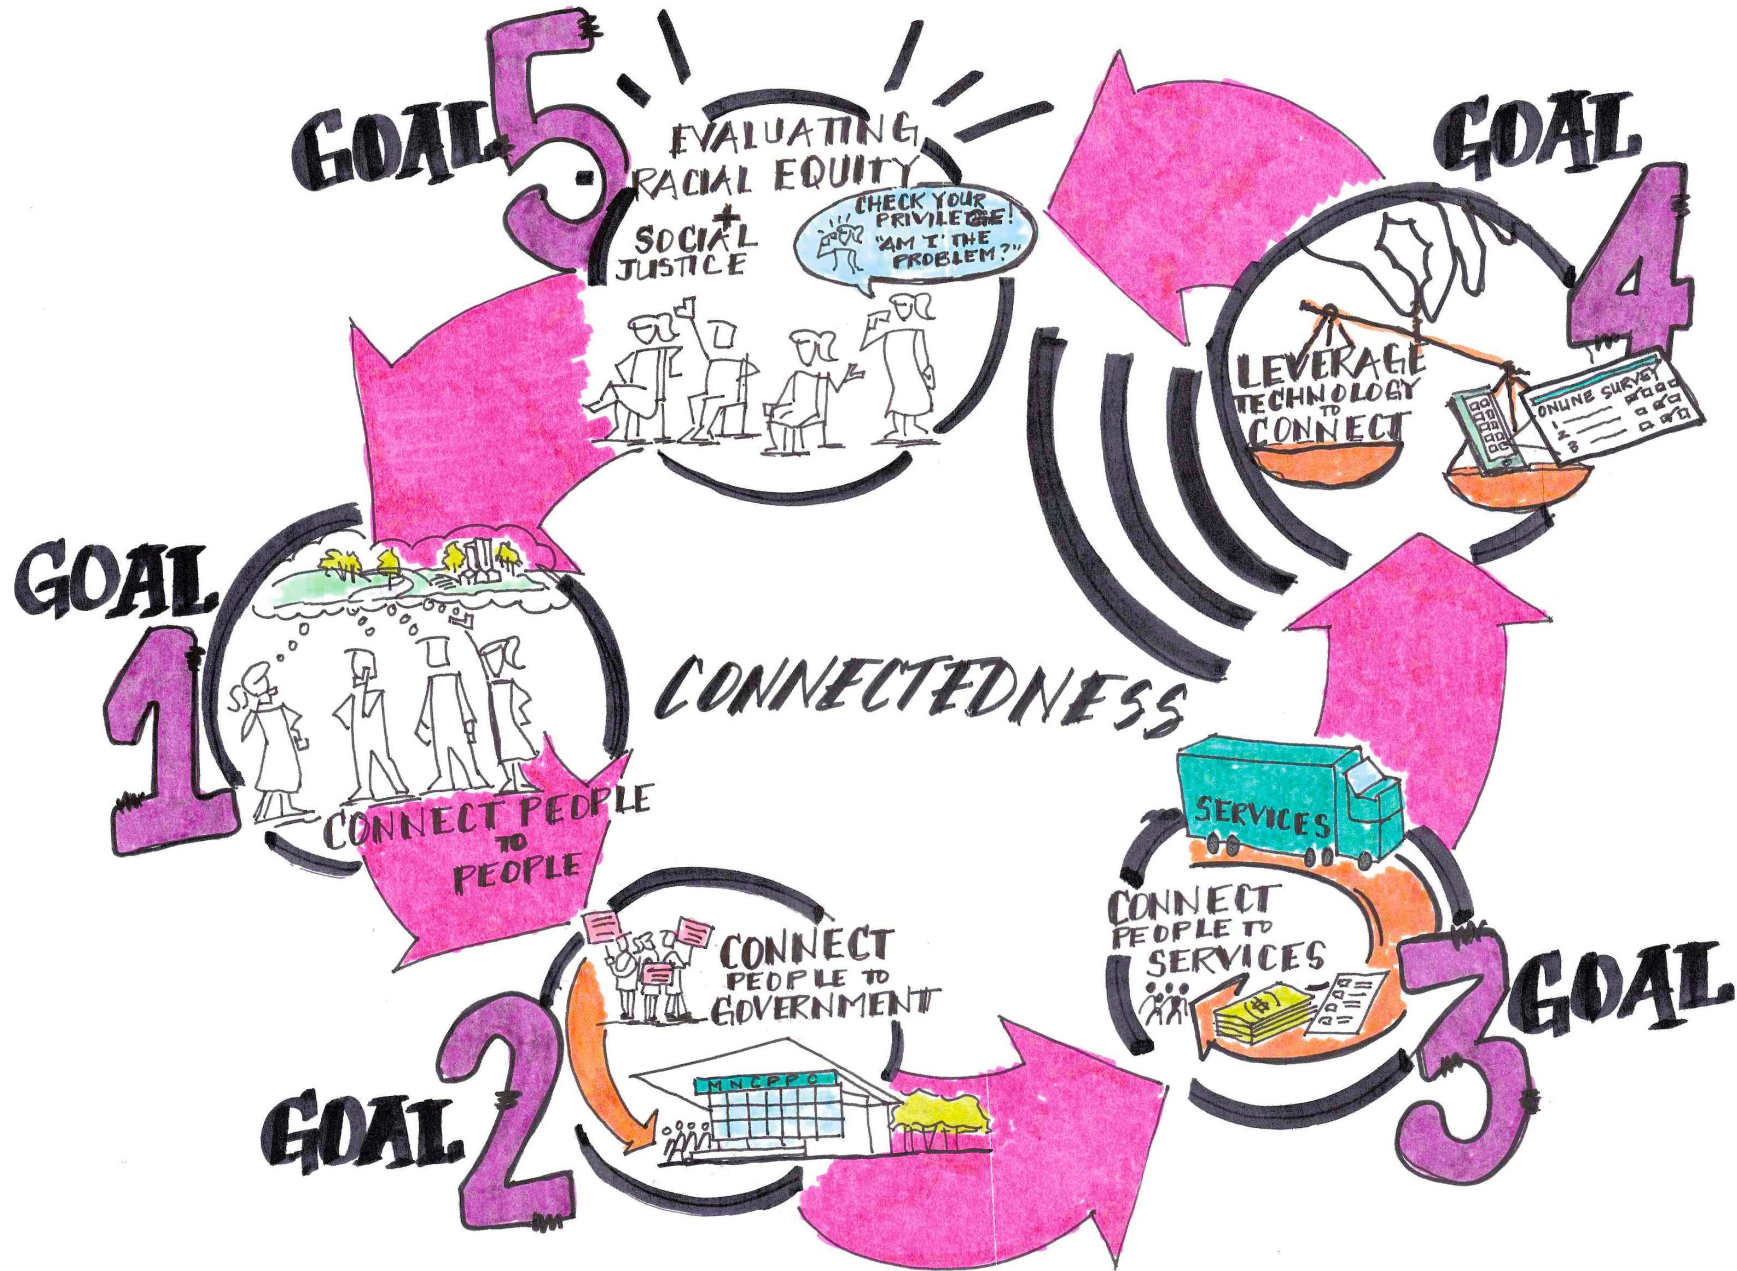 GOAL 5.
EVALUATING
RACIAL EQUITY
+
SOCIAL
JUSTICE
CHECK YOUR
PRIVILEGE!
"AM 'I' THE
PROBLEM?"
GOAL
4
LEVERAGE
TECHNOLOGY
TO
CONNECT
ONLINE SURVEY
1
2
3
GOAL
1
CONNECT PEOPLE
TO
PEOPLE
CONNECTEDNESS
GOAL 2
CONNECT
PEOPLE TO
GOVERNMENT
MNCPPC
SERVICES
CONNECT
PEOPLE TO
SERVICES
($)
3 GOAL